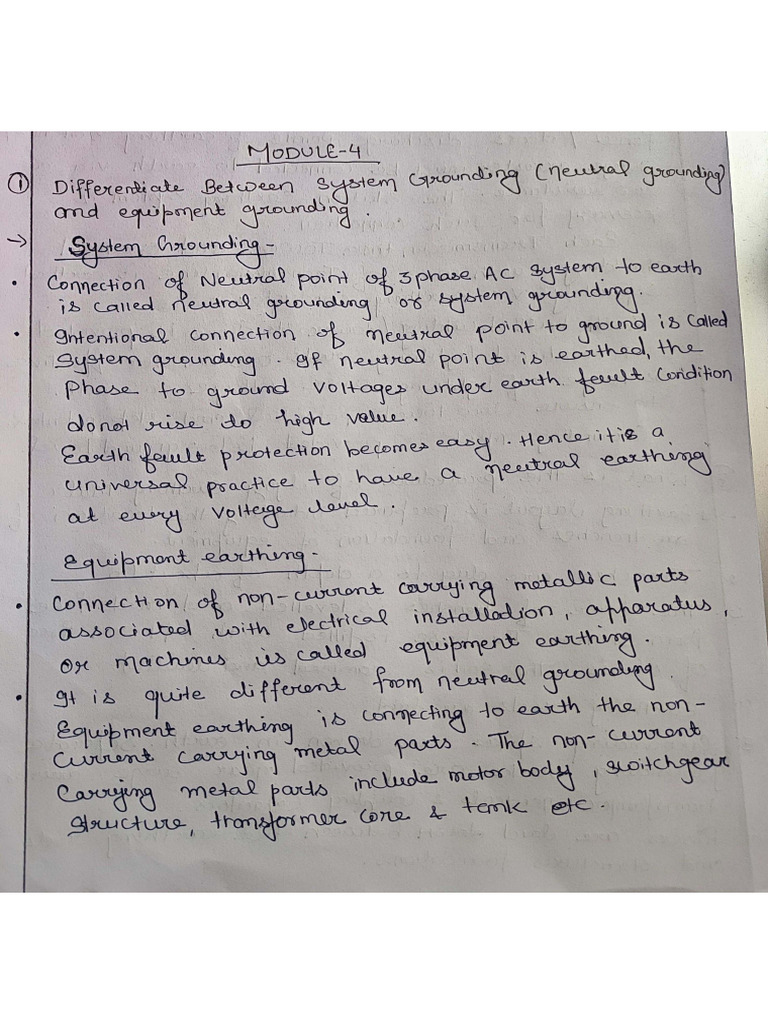 MODULE-4
① Differentiate Between System Grounding (neutral grounding)
and equipment grounding.
→ System Grounding -
• Connection of Neutral point of 3phase AC System to earth
is called neutral grounding or system grounding.
• Intentional connection of neutral point to ground is called
system grounding. If neutral point is earthed, the
Phase to ground voltages under earth fault condition
donot rise to high value.
Earth fault protection becomes easy. Hence it is a
universal practice to have a neutral earthing
at every voltage level.
Equipment earthing -
• Connection of non-current carrying metallic parts
associated with electrical installation, apparatus,
or machines is called equipment earthing.
• It is quite different from neutral grounding.
Equipment earthing is connecting to earth the non-
current carrying metal parts. The non-current
Carrying metal parts include motor body, switchgear
structure, transformer core & tank etc.